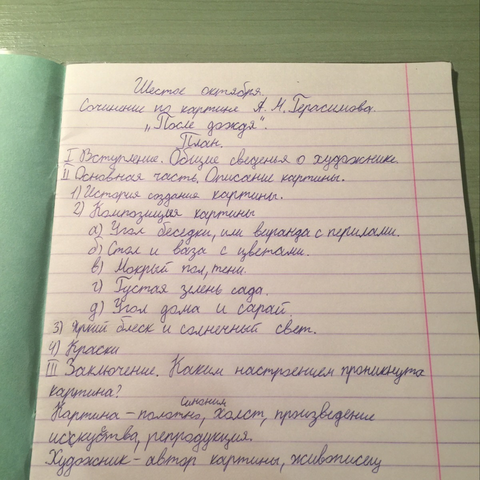 Шестое октября.
Сочинение по картине А. М. Герасимова.
„После дождя".
План.
I Вступление. Общие сведенья о художнике.
II Основная часть. Описание картины.
1) История создания картины.
2) Композиция картины
а) Угол беседки, или виранда с перилами.
б) Стол и ваза с цветами.
в) Мокрый пол, тени.
г) Густая зелень сада.
д) Угол дома и сарай.
3) Яркий блеск и солнечный свет.
4) Краски
III Заключение. Каким настроением проникнута
картина?
Синоним
Картина – полотно, холст, произведение
искуства, репродукция.
Художник – автор картины, живописец